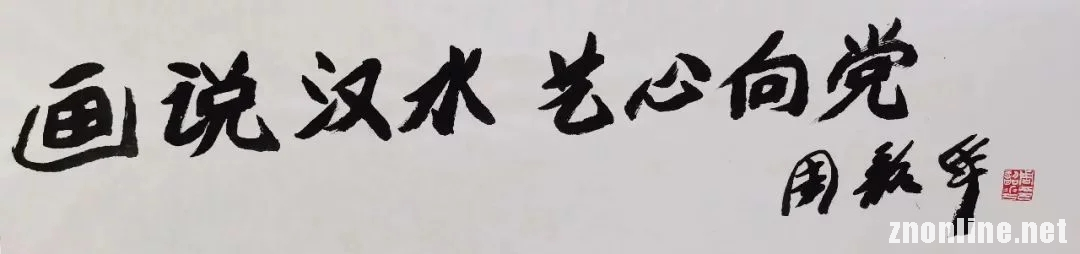 画说汉水 艺心向党
周韶华
znonline.net